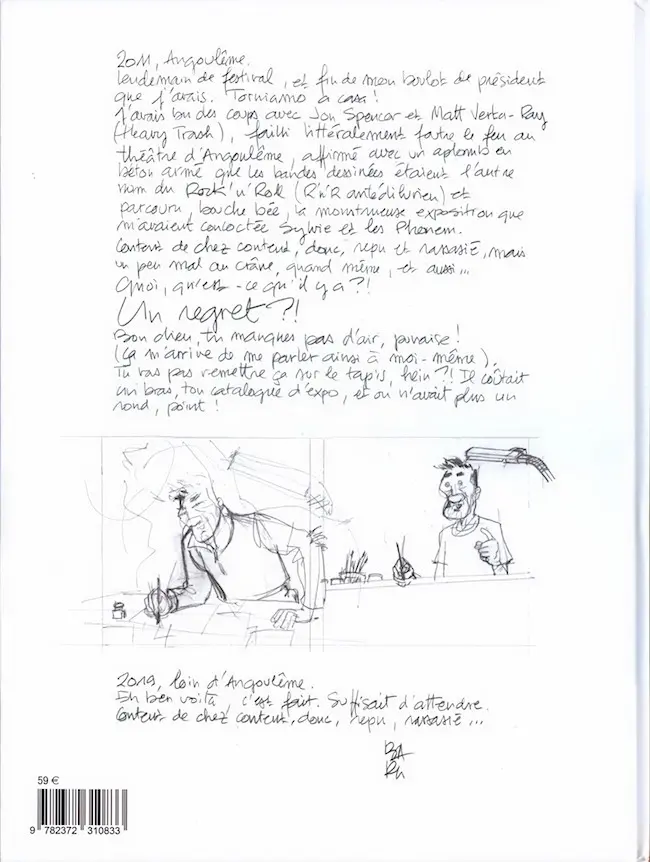 2011, Angoulême.
Lendemain de festival, et fin de mon boulot de président
que j'avais. Torniamo a casa !
J'avais bu des coups avec Jon Spencer et Matt Verta-Ray
(Heavy Trash), failli littéralement foutre le feu au
théâtre d'Angoulême, affirmé avec un aplomb en
béton armé que les bandes dessinées étaient l'autre
nom du Rock'n'Roll (R'n'R antédiluvien) et
parcouru, bouche bée, la monstrueuse exposition que
m'avaient concoctée Sylvie et les Phanem.
Content de chez content, donc, repu et rassasié, mais
un peu mal au crâne, quand même, et aussi...
Quoi, qu'est-ce qu'il y a ?!
Un regret ?!
Bon dieu, tu manques pas d'air, punaise !
(ça m'arrive de me parler ainsi à moi-même).
Tu vas pas remettre ça sur le tapis, hein ?! Il coûtait
un bras, ton catalogue d'expo, et on n'avait plus un
rond, point !
2019, loin d'Angoulême.
Eh ben voilà, c'est fait. Suffisait d'attendre.
Content de chez content, donc, repu, rassasié...
BA
RU
59 €
9 782372 310833